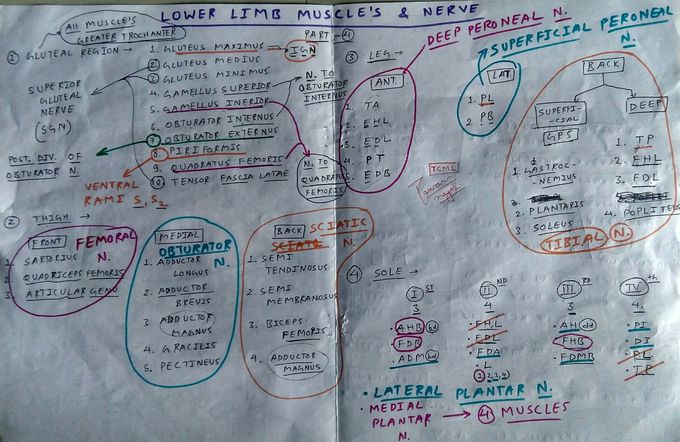 LOWER LIMB MUSCLE'S & NERVE
All MUSCLE'S
GREATER TROCHANTER
PART-4
① GLUTEAL REGION →
1. GLUTEUS MAXIMUS — IGN
2 GLUTEUS MEDIUS
3 GLUTEUS MINIMUS
4. GAMELLUS SUPERIOR
5. GAMELLUS INFERIOR
6. OBTURATOR INTERNUS
7 OBTURATOR EXTERNUS
8. PIRIFORMIS
9. QUADRATUS FEMORIS
10. TENSOR FASCIA LATAE
SUPERIOR
GLUTEAL
NERVE
(SGN)
POST. DIV. OF
OBTURATOR N.
VENTRAL
RAMI S1, S2
N. TO
OBTURATOR
INTERNUS
N. TO
QUADRATUS
FEMORIS
② THIGH →
FRONT
FEMORAL
N.
1. SARTORIUS
2. QUADRICEPS FEMORIS
3. ARTICULAR GENU
MEDIAL
OBTURATOR
N.
1. ADDUCTOR
LONGUS
2. ADDUCTOR
BREVIS
3 ADDUCTOR
MAGNUS
4. GRACILIS
5. PECTINEUS
BACK
SCIATIC
N.
1. SEMI
TENDINOSUS
2. SEMI
MEMBRANOSUS
3. BICEPS
FEMORIS
4. ADDUCTOR
MAGNUS
③ LEG →
DEEP PERONEAL N.
ANT.
1 TA
2 EHL
3 EDL
4. PT
5. EDB
SUPERFICIAL PERONEAL
N.
LAT
1. PL
2 PB
BACK
SUPERFI-
CIAL
GPS
1. GASTROC-
NEMIUS
2. PLANTARIS
3. SOLEUS
DEEP
1. TP
2. FHL
3. FDL
4. POPLITEUS
TIBIAL N.
TCML
④ SOLE →
I ST
3
AHB bd
FDB
ADM bd
II ND
4
FHL
FDL
FDA
L
1 2, 3, 4
III RD
3
AH ad
FHB
FDMB
IV th
4.
PI
DI
PL
TP
LATERAL PLANTAR N.
MEDIAL
PLANTAR
N.
→ ④ MUSCLES